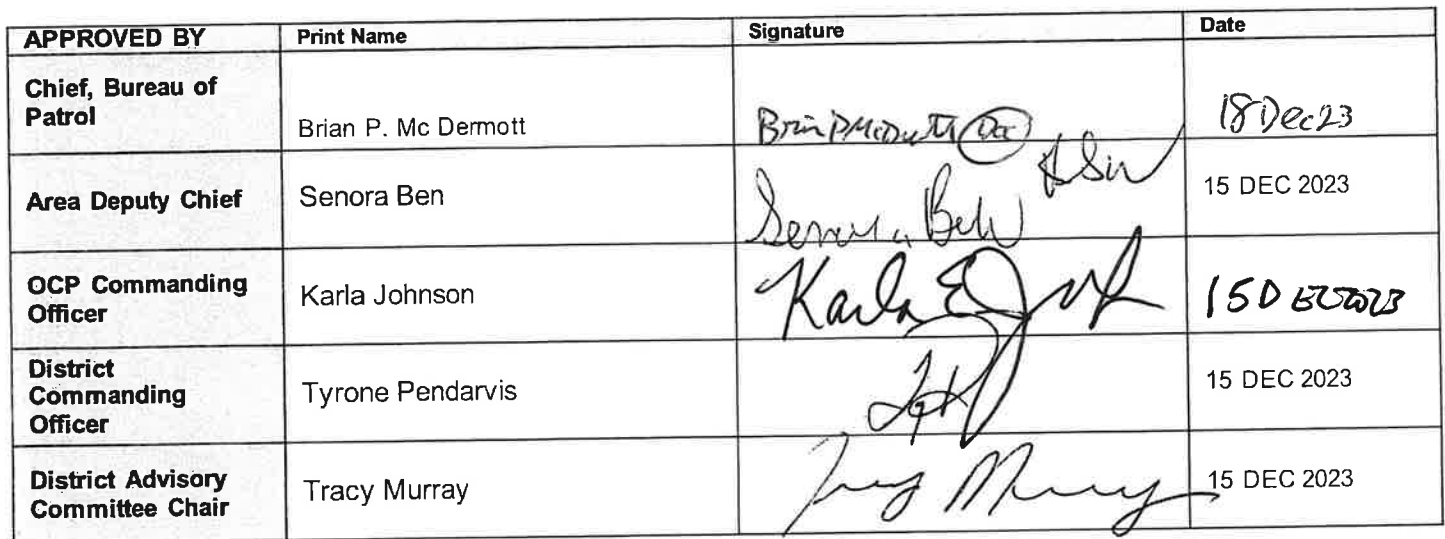 APPROVED BY Print Name Signature Date
Chief, Bureau of
Patrol
Brian P. Mc Dermott
18 Dec 23
Area Deputy Chief
Senora Ben
Senora Ben
15 DEC 2023
OCP Commanding
Officer
Karla Johnson
Karla E
15 DEC 2023
District
Commanding
Officer
Tyrone Pendarvis
15 DEC 2023
District Advisory
Committee Chair
Tracy Murray
Tracy Murray
15 DEC 2023